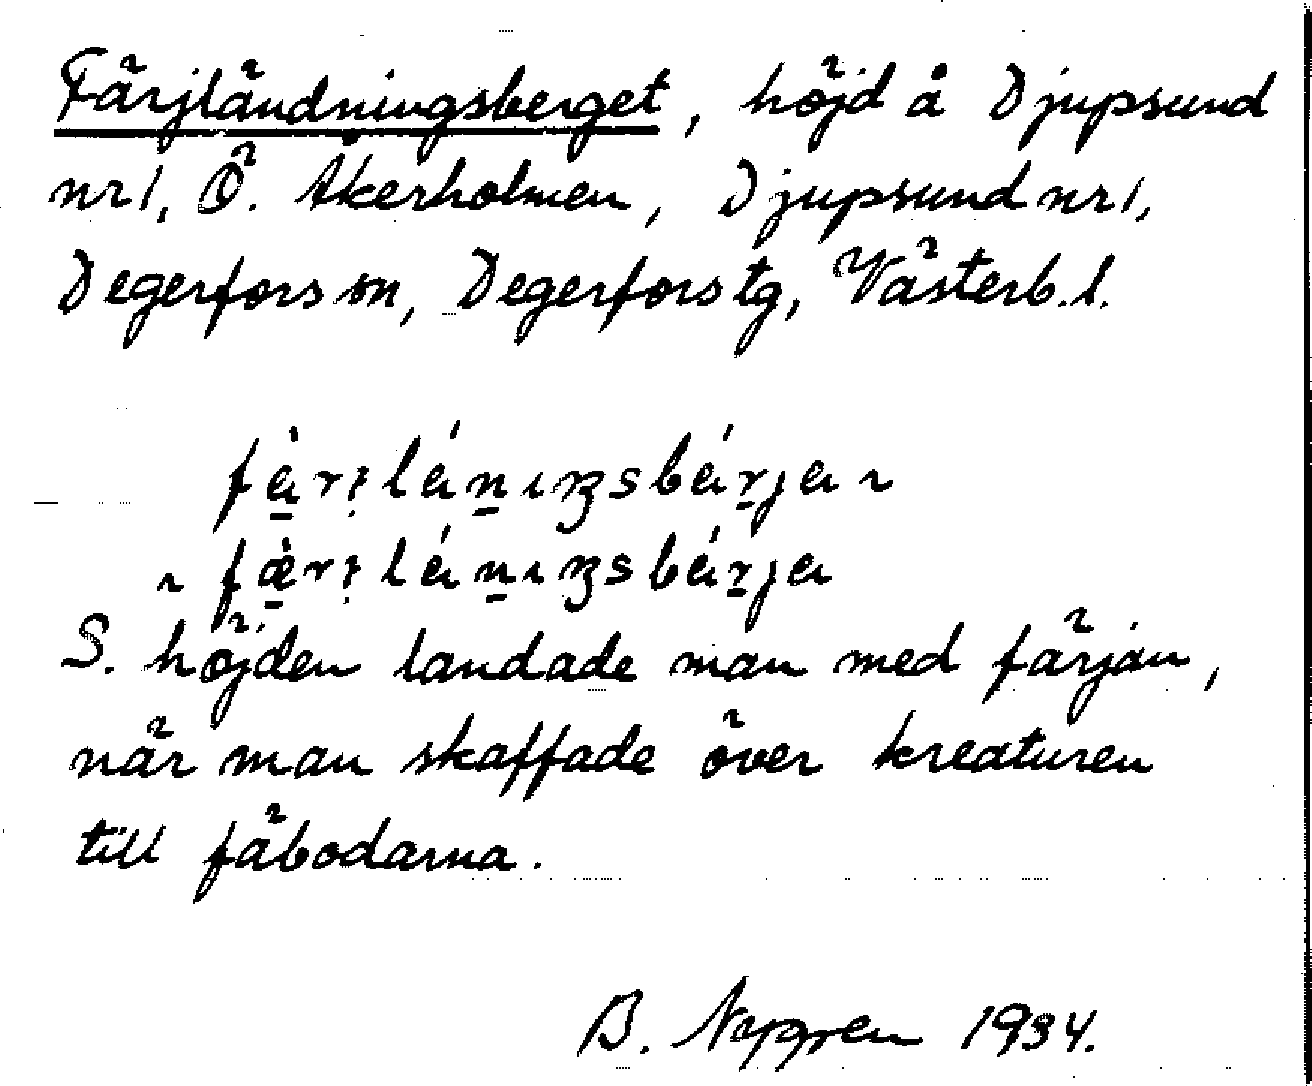 Färjländningsberget, höjd å Djupsund
nr 1, Ö. Åkerholmen, Djupsund nr 1,
Degerfors sn, Degerfors tg, Västerb. l.
S. höjden landade man med färjan,
när man skaffade över kreaturen
till fäbodarna.
B. Nygren 1934.